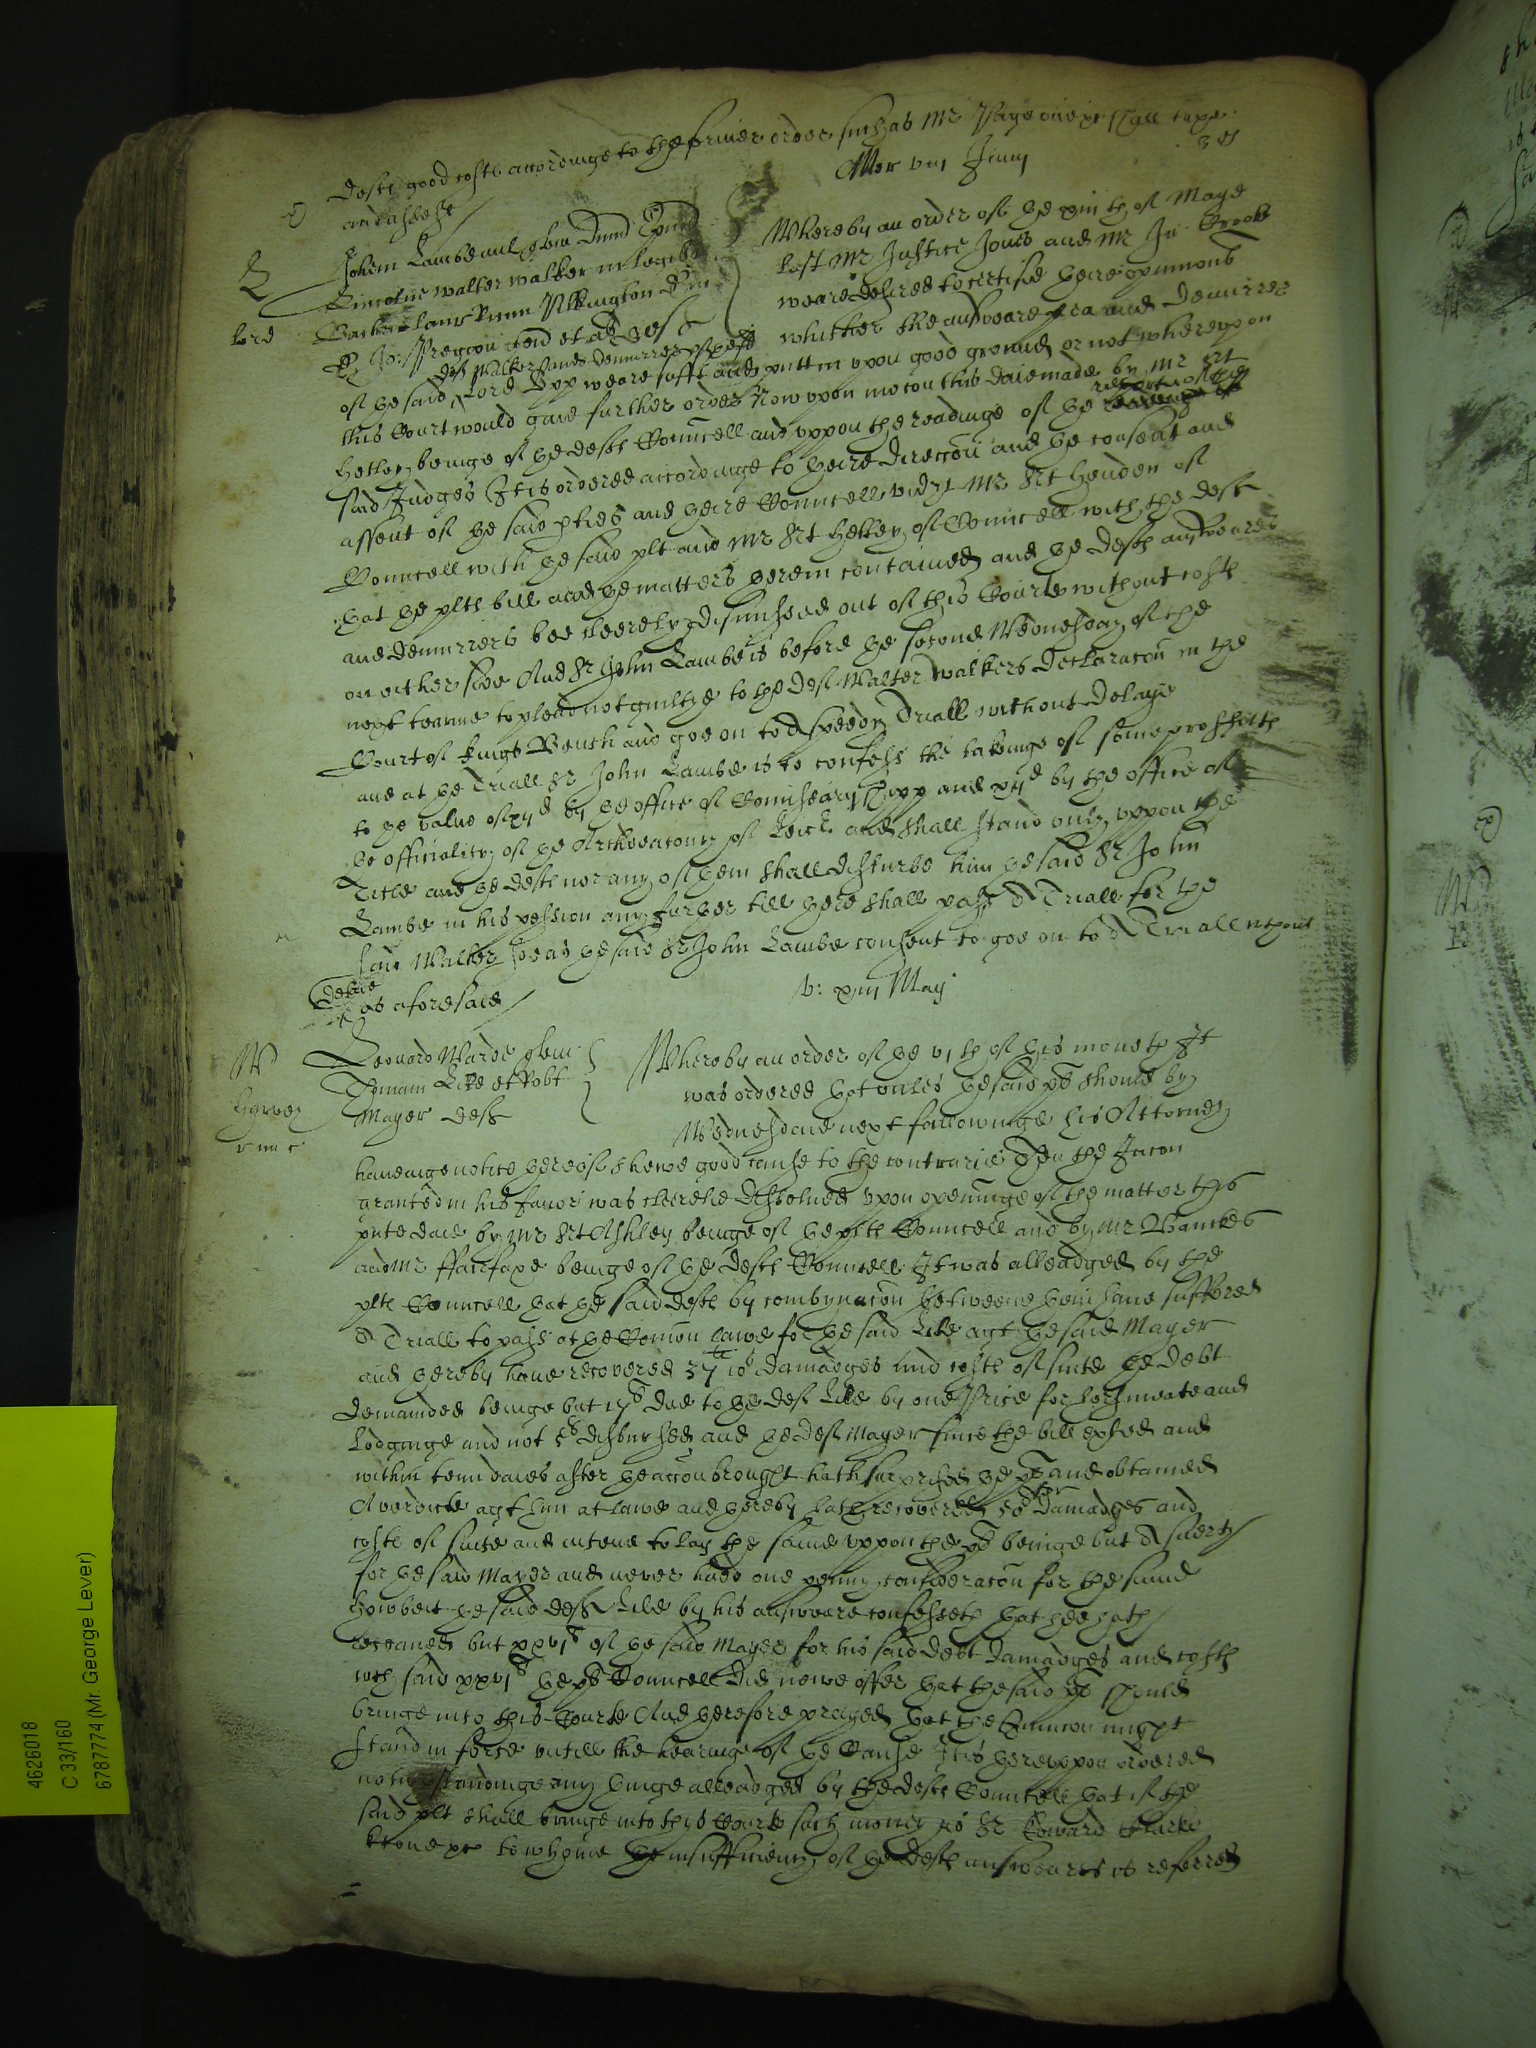 deftes good costs accordinge to the former order such as Mr Page one &c shall taxe
and assesse
Mer viij Junij
Johem Lambe mil quer Dnum Epum
Lincolne Walter Walker in legibus
lord
Whereby an order of ye xiiijth of Maye
last Mr Justice Jones and Mr Ju: Crooke
weare desired to certifie theire opinions
whither the answeare plea and demurrer
def Walkers and demurrer
of ye said Lord Bpp weare suffic and putt in upon good ground or not whereupon
this Court would give further order Now upon mocon this daie made by Mr Srt
Hetley beinge of ye defts Councell and uppon the readinge of ye reporte of the
said Judges It is ordered accordinge to theire direccon and ye consent and
assent of ye said pties and theire Councell vidzt Mr Srt Henden of
Councell with ye said plt and Mr Srt Hetley of Councell with the deft
that ye plts bill and ye matters therein contained and ye defts answeares
and demurrers bee cleerely dismissed out of this Courte without costs
on either side And Sr John Lambe is before ye second Wednesday of the
next tearme to plead not guiltye to the def Walter Walkers declaracon in the
Court of Kings Bench and goe on to a speedy Triall without delaye
and at ye Triall Sr John Lambe is to confesse the takinge of some proffitts
to ye value of xijd by ye office of Comissary and xijd by the office of
ye officiality of ye Archdeaconry of Leic and shall stand only uppon the
Title and ye defts nor any of them shall disturbe him ye said Sr John
Lambe in his possion any further till there shall passe a Triall for the
said Walker soe as ye said Sr John Lambe consent to goe on to a Triall wthout
delaie
as aforesaid
v: xiij Maij
Leonard Warde quer
Thomam Lile et Robt
Mayer defts
Harvey
Whereby an order of ye vjth of this moneth It
was ordered that unles ye said plt should by
Wednesdaie next followinge his Attorney
haveinge notice thereof shewe good cause to the contrarie then the Iniuncon
granted in his favor was cleerelie dissolved Upon openinge of the matter this
pnte daie by Mr Srt Ashley beinge of ye plts Councell and by Mr Banckes
and Mr Fairfaxe beinge of ye defts Councell It was alleadged by the
plts Councell that ye said defts by combynacon betweene them have suffered
a Triall to passe at ye Comon lawe for ye said Lile agt ye said Mayer
and thereby have recovered 37li 10s damadges and costs of suite ye debt
demanded beinge but due to ye def Lile by one Price for horsmeate and
Lodginge and not 5s disbursed and ye def Mayer since the bill exhited and
within tenn daies after ye accon brought hath surprised ye plt and obtained
A verdicte agt him at lawe and thereby hath recovered for damadges and
costs of suite and intend to lay the same uppon the plt beinge but a suerty
for ye said Mayer and never hadd one penny consideracon for the same
howbeit ye said deft Lile by his answeare confesseth that hee hath
receaved but xxvjs of ye said Mayer for his said debt damadges and costs
wch said xxvjs ye plts Councell did nowe offer that the said plt should
bringe into this Courte And therefore prayed that the Iniuncon might
stand in force untill the hearinge of ye Cause It is thereuppon ordered
notwthstandinge any thinge alleadged by the defts Councell that if the
said plt shall bringe into this Courte such money as Sr Edward Clarke
Kt one &c to whome the insufficiency of ye defts answeares is referred
4626018
C 33/160
6787774 (Mr. George Lever)